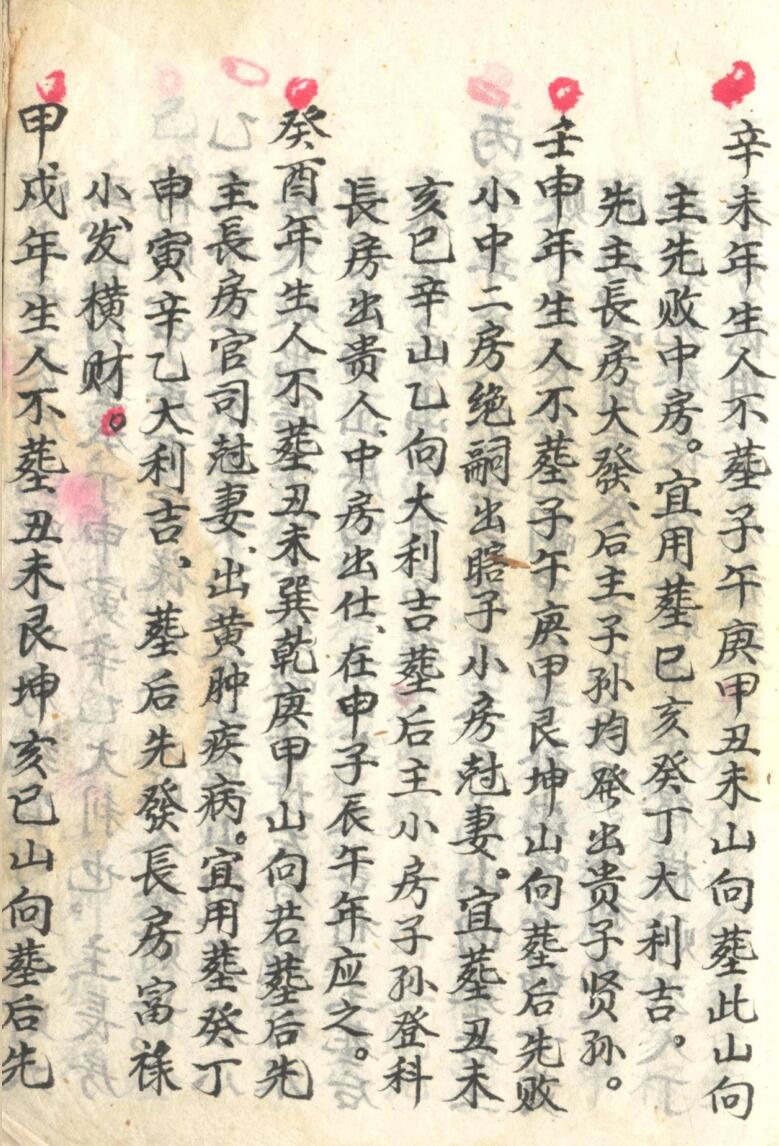 辛未年生人不葬子午庚甲丑未山向葬此山向
主先败中房。宜用葬巳亥癸丁大利吉。
先主長房大發、后主子孙均発出贵子贤孙。
壬申年生人不葬子午庚甲艮坤山向葬后先败
小中二房绝嗣出瞎子小房尅妻。宜葬丑未
亥巳辛山乙向大利吉葬后主小房子孙登科
長房出贵人、中房出仕、在申子辰午年应之。
癸酉年生人不葬丑未巽乾庚甲山向若葬后先
主長房官司尅妻、出黄肿疾病。宜用葬癸丁
申寅辛乙大利吉、葬后先發長房富禄
小发横财。
甲戍年生人不葬丑未艮坤亥巳山向葬后先